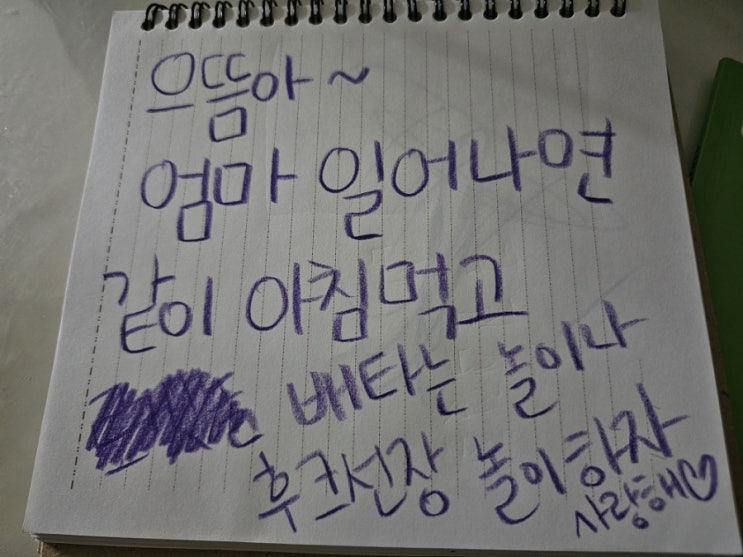 으뜸아~
엄마 일어나면
같이 아침먹고
배타는 놀이나
후크선장 놀이하자
사랑해♡